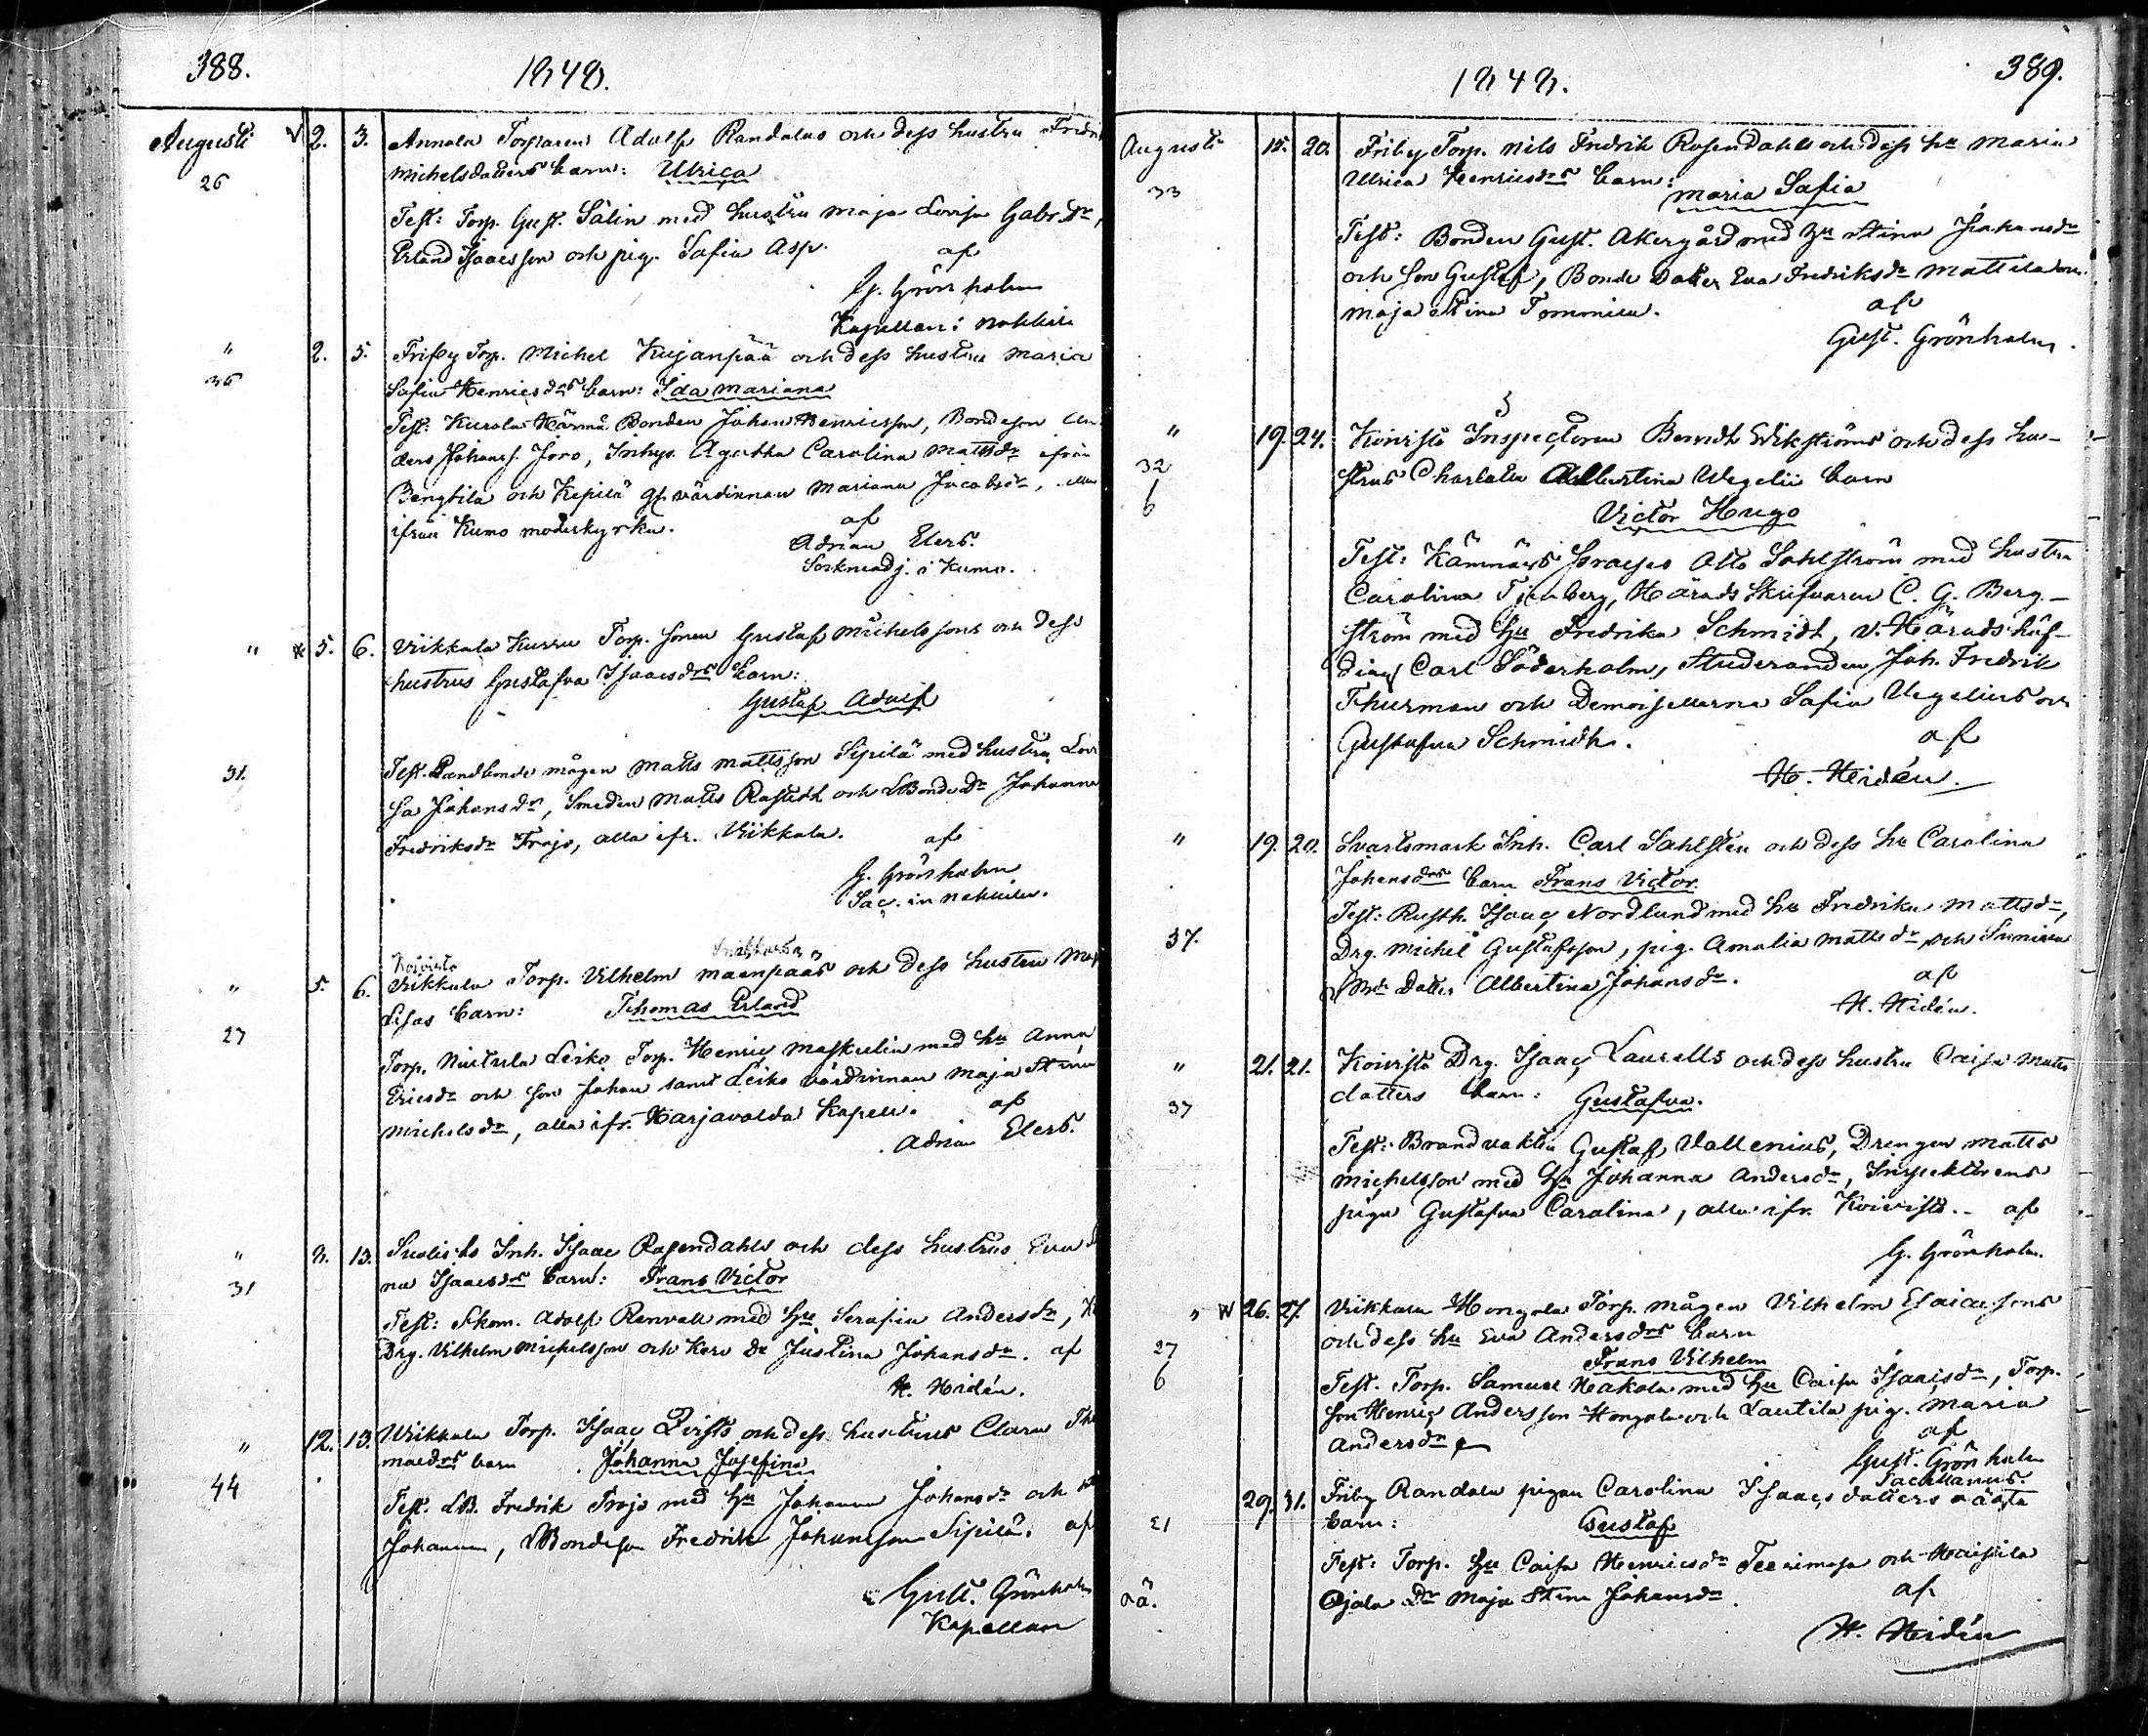 388.
1848.
Augusti 2. 3. Annala Torparen Adolf Randalas och dess hustru Fredri
26 Michelsdotters barn: Ulrica
Test: Torp. Gust. Sálin med hustru Maja Lovisa Gabr. dr,
Erland Isaacsson och pig. Safia Asp. af
G. Grönholm
Kapellan i
" 2. 5. Friby Torp. Michel Kujanpää och dess hustru Maria
36 Safia Henricsdrs barn: Ida Mariana
Test: Kurola Härmä Bonden Johan Henricsson, Bondeson An
ders Johanss. Joro, Inhys. Agatha Carolina Mattsdr ifrån
Bengtila och Kepilä gl. värdinnan Mariana Jacobsdr, alla
ifrån Kumo moderkyrka. af
Adrian Elers.
Sockneadj. i Kumo.
" 5. 6. Viikkala Kurru Torp. sonen Gustaf Michelssons och dess
hustrus Gustafva Isaacsdrs barn:
Gustaf Adolf
31. Test. Landbonde mågen Matts Mattsson Sipilä med hustru Lovi
sa Johansdr, Smeden Matts Rostedt och LBonde Dr Johanna
Fredriksdr Frojo, alla ifr. Viikkala. af
G. Grönholm
Sac. in
Koivisto
" 5. 6. Viikkala Torp. Vilhelm Maenpääs och dess hustru Maj
Lisas barn: Thomas Erland
27 Torp. Leiko Torp. Henric Maskulin med hu Anna
Ericsdr och son Johan samt Leiko värdinnan Maja Stina
Michelsdr, alla ifr. Harjavalda Kapell. af
Adrian Elers.
" 8. 13. Suolisto Inh. Isaac Rosendahls och dess hustrus Eva
31 na Isaacsdrs barn: Frans Victor
Test: Skom. Adolf Renvall med hu Serafia Andersdr,
Drg. Vilhelm Michelsson och Kero dr Justina Johansdr. af
H. Hidén.
" 12. 13. Viikkala Torp. Isaac Qvists och dess hustrus Clara Tho
masdrs barn Johanna Josefina
44 Test. LB. Fredrik Frojo med hu Johanna Johansdr och
Johanna, LBondeson Fredrik Johansson Sipilä. af
Gust. Grönholm
Kapellan
1848.
389.
Augusti 15. 20. Friby Torp. Nils Fredrik Rosendahls och dess hu Maria
33 Ulrica Henricsdrs barn:
Maria Safia
Test: Bonden Gust. Åkergård med hu Stina Johansdr
och son Gustaf, Bonde dotter Eva Fredriksdr Mattila och
Maja Stina Tommila. af
Gust. Grönholm.
" 19. 24. Koivisto Inspectoren Berndt Wikströms och dess hu-
32 strus Charlotta Albertina Wegelii barn
6 Victor Hugo
Test: Kämnärs Præses Otto Sohlström med hustru
Carolina Timberg, Härads Skrifvaren C. G. Berg-
ström med hu Fredrika Schmidt, v. Härads höf-
ding Carl Söderholm, Studeranden Joh. Fredrik
Thurman och Demoisellerna Safia Wegelius och
Gustafva Schmidt. af
H. Hidén.
" 19. 20. Svartsmark Inh. Carl Sahlsten och dess hu Carolina
Johansdrs barn Frans Victor.
Test: Rusth. Isaac Nordlund med hu Fredrika Mattsdr,
37. Drg. Michel Gustafsson, pig. Amalia Mattsdr och
Bde Dotter Albertina Johansdr. af
H. Hidén.
" 21. 21. Koivisto Drg. Isaac Laurells och dess hustru Caisa Matts
37 dotters barn: Gustafva.
Test: Brandvakten Gustaf Vallenius, Drengen Matts
Michelsson med hu Johanna Andersdr, Inspektorens
piga Gustafva Carolina, alla ifr. Koivisto. af
G. Grönholm.
" 26. 27. Viikkala Hongola Torp. mågen Vilhelm Esaiassons
27 och dess hu Eva Andersdrs barn
Frans Vilhelm
6 Test. Torp. Samuel Hakola med hu Caisa Isaacsdr, Torp.
son Henric Andersson Hongola och Lautila pig. Maria
Andersdr af
Gust. Grönholm
Sacellanus.
29. 31. Friby Randala pigan Carolina Isaacsdotters oäkta
21 barn: Gustaf
Test: Torp. hu Caisa Henricsdr Teerimasa och Haistila
oä. Ojala Dr Maja Stina Johansdr. af
H. Hidén